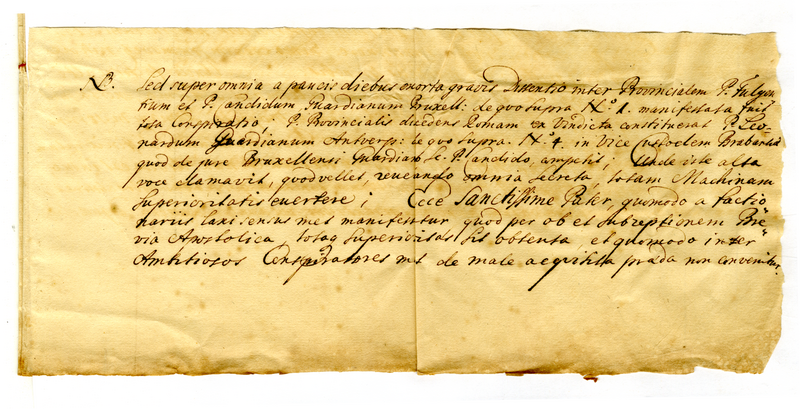 NB. Sed super omnia a paucis diebus exorta gravis dissentio inter Provincialem P. Fulgen-
tium et P. Candidum Guardianum Bruxell: de quo supra N.º 1. manifestata fuit
tota Conspiratio; P. Provincialis discedens Romam ex Vindicta constituerat P. Leo-
nardum Guardianum Antverp: de quo supra. N.º 4. in Vice Custodem Brabantiæ
quod de jure Bruxellensi Guardiano P. Candido competit; Unde iste alta
voce clamavit, quod vellet, revelando omnia secreta, totam Machinam
Superioritatis evertere; Ecce Sanctissime Pater, quomodo a factio
nariis laxi sensus manifestetur quod per ob et subreptionem Bre"
via Apostolica totaq Superioritas sit obtenta et quomodo inter"
Ambitiosos Conspiratores de male acquisita præda non convenitur.